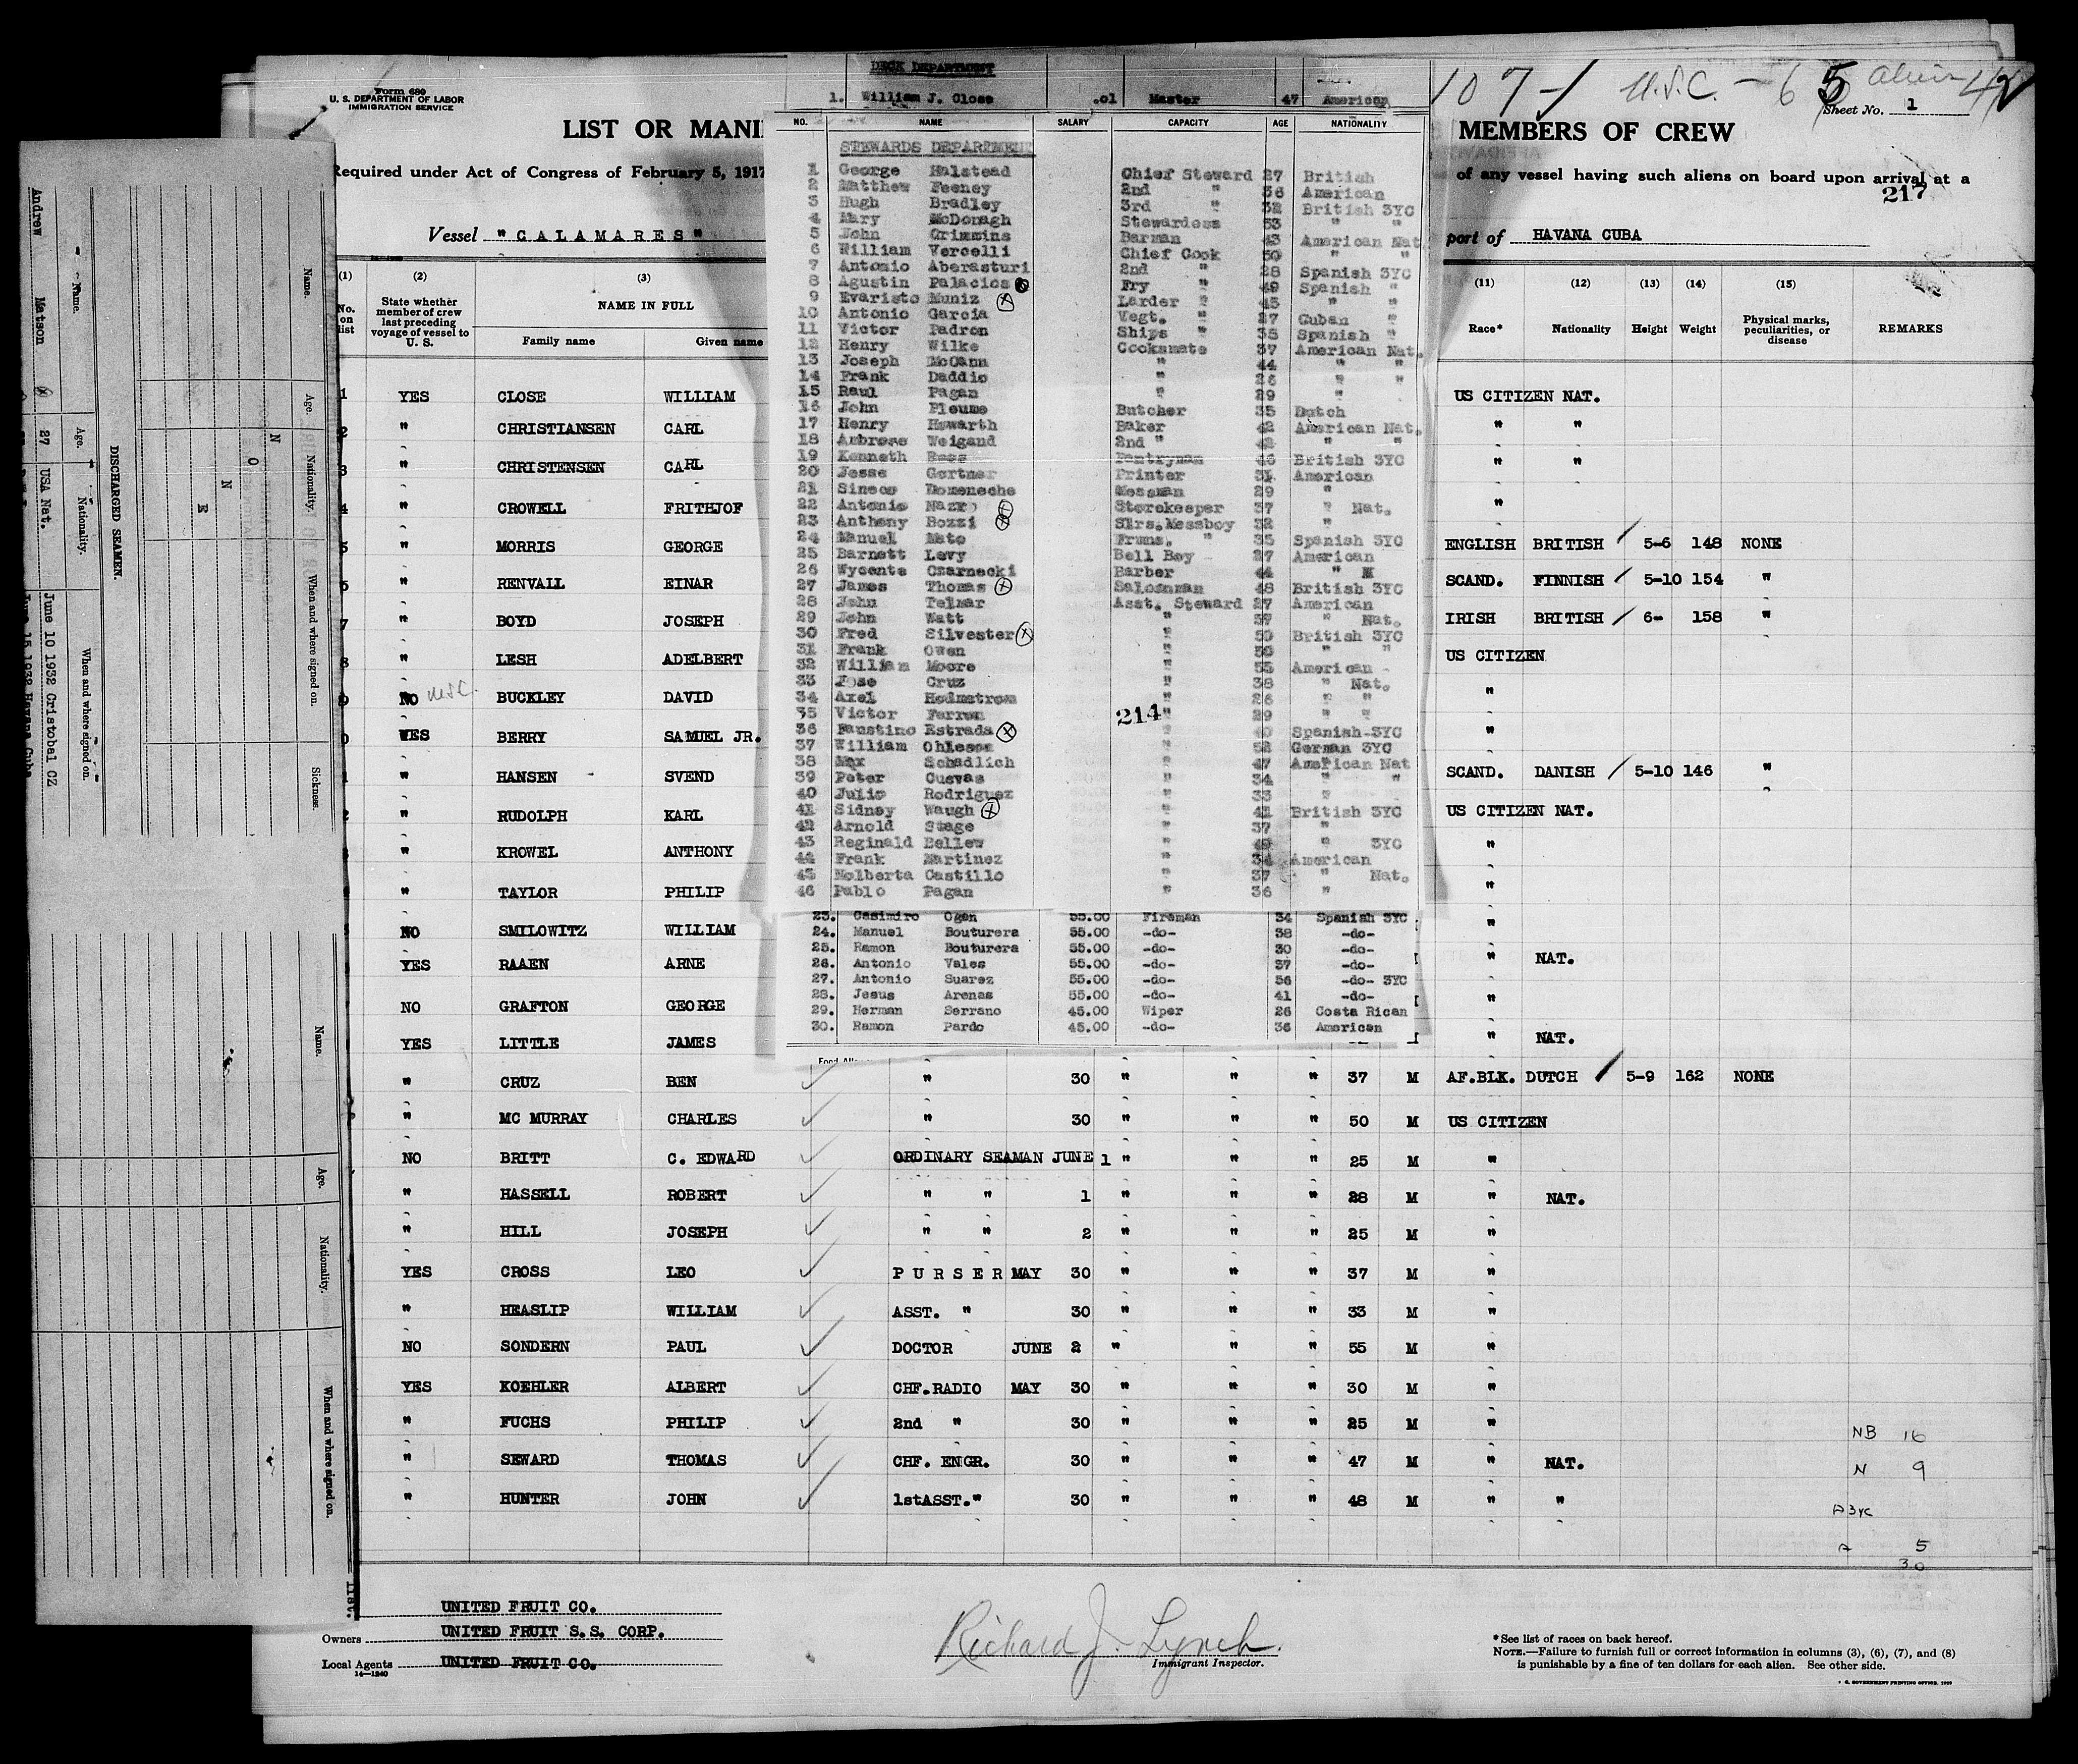 Form 680
U. S. DEPARTMENT OF LABOR
IMMIGRATION SERVICE
LIST OR MANI
Required under Act of Congress of February 5, 1917
Vessel "CALAMARES"
(1) (2) (3)
No. on list
State whether member of crew last preceding voyage of vessel to U. S.
NAME IN FULL
Family name Given name
1 YES CLOSE WILLIAM
2 " CHRISTIANSEN CARL
3 " CHRISTENSEN CARL
4 " CROWELL FRITHJOF
5 " MORRIS GEORGE
" RENVALL EINAR
7 " BOYD JOSEPH
" LESH ADELBERT
NO BUCKLEY DAVID
YES BERRY SAMUEL JR.
" HANSEN SVEND
" RUDOLPH KARL
" KROWEL ANTHONY
" TAYLOR PHILIP
NO SMILOWITZ WILLIAM
YES RAAEN ARNE
NO GRAFTON GEORGE
YES LITTLE JAMES
DECK DEPARTMENT
1. William J. Close .01 Master 47 American
NO. NAME SALARY CAPACITY AGE NATIONALITY
STEWARDS DEPARTMENT
1 George Halstead Chief Steward 27 British
2 Matthew Feeney 2nd " 36 American
3 Hugh Bradley 3rd " 32 British 3YC
4 Mary McDonagh Stewardess 53 " "
5 John Crimmins Barman 43 American Nat
6 William Vercelli Chief Cook 50 " "
7 Antonio Aberasturi 2nd " 28 Spanish 3YC
8 Agustin Palacios Fry " 49 Spanish "
9 Evaristo Muniz Larder " 45 " "
10 Antonio Garcia Vegt. " 27 Cuban "
11 Victor Padron Ships " 35 Spanish "
12 Henry Wilke Cooksmate 37 American Nat.
13 Joseph McCann " 44 " "
14 Frank Daddio " 26 " "
15 Raul Pagan " 29 "
16 John Pleume Butcher 35 Dutch
17 Henry Howarth Baker 42 American Nat.
18 Ambrose Weigand 2nd " 42 " "
19 Kenneth Ross Pantryman 46 British 3YC
20 Jesse Gertner Printer 31 American
21 Sineos Domeneche Messman 29 "
22 Antonio Nazro Storekeeper 37 " Nat.
23 Anthony Bozzi Strs. Messboy 32 "
24 Manuel Mato Frums. " 35 Spanish 3YC
25 Barnett Levy Bell Boy 27 American
26 Wycenta Czarnecki Barber 44 " N
27 James Thomas Saloonman 48 British 3YC
28 John Telmar Asst. Steward 27 American
29 John Watt " 57 " Nat.
30 Fred Silvester " 50 British 3YC
31 Frank Owen " 30 " "
32 William Moore " 55 American
33 Jose Cruz " 38 " Nat.
34 Axel Hedmstrom " 26 " "
35 Victor Ferron 214 " 29 " "
36 Faustino Estrada " 40 Spanish-3YC
37 William Ohleson " 52 German 3YC
38 Max Schadlich " 47 American Nat
39 Peter Cuevas " 34 " "
40 Julio Rodriguez " 33 "
41 Sidney Waugh " 41 British 3YC
42 Arnold Stage " 37 "
43 Reginald Bellew " 49 " 3YC
44 Frank Martinez " 34 American
45 Nolberta Castillo " 37 " Nat.
46 Pablo Pagan " 36 "
23. Casimiro Ogen 55.00 Fireman 34 Spanish 3YC
24. Manuel Bouturera 55.00 -do- 38 -do-
25. Ramon Bouturera 55.00 -do- 30 -do-
26. Antonio Vales 55.00 -do- 37 -do-
27. Antonio Suarez 55.00 -do- 56 -do- 3YC
28. Jesus Arenas 55.00 -do- 41 -do-
29. Herman Serrano 45.00 Wiper 26 Costa Rican
30. Ramon Pardo 45.00 -do- 36 American
107 - U.S.C. - 65 alien 42
Sheet No. 1
MEMBERS OF CREW
of any vessel having such aliens on board upon arrival at a
217
port of HAVANA CUBA
(11) (12) (13) (14) (15)
Race* Nationality Height Weight Physical marks, peculiarities, or disease REMARKS
US CITIZEN NAT.
" "
" "
"
ENGLISH BRITISH 5-6 148 NONE
SCAND. FINNISH 5-10 154 "
IRISH BRITISH 6- 158 "
US CITIZEN
"
"
SCAND. DANISH 5-10 146 "
US CITIZEN NAT.
"
"
"
" NAT.
"
" NAT.
" CRUZ BEN " 30 " " " 37 M AF.BLK. DUTCH 5-9 162 NONE
" MC MURRAY CHARLES " 30 " " " 50 M US CITIZEN
NO BRITT C. EDWARD ORDINARY SEAMAN JUNE 1 " " " 25 M "
" HASSELL ROBERT " " 1 " " " 28 M " NAT.
" HILL JOSEPH " " 2 " " " 25 M "
YES CROSS LEO PURSER MAY 30 " " " 37 M "
" HEASLIP WILLIAM ASST. " 30 " " " 33 M "
NO SONDERN PAUL DOCTOR JUNE 2 " " " 55 M "
YES KOEHLER ALBERT CHF.RADIO MAY 30 " " " 30 M "
" FUCHS PHILIP 2nd " 30 " " " 25 M "
" SEWARD THOMAS CHF. ENGR. 30 " " " 47 M " NAT.
" HUNTER JOHN 1stASST." 30 " " " 48 M " "
NB 16
N 9
A 3YC
A 5
30
UNITED FRUIT CO.
Owners UNITED FRUIT S.S. CORP.
Local Agents UNITED FRUIT CO.
14-1240
Richard J. Lynch
Immigrant Inspector.
*See list of races on back hereof.
NOTE.—Failure to furnish full or correct information in columns (3), (6), (7), and (8)
is punishable by a fine of ten dollars for each alien. See other side.
DISCHARGED SEAMEN.
Name. Age. Nationality. When and where signed on.
Andrew Matson 27 USA Nat. June 10 1932 Cristobal CZ
June 15 1932 Havana Cuba
Name. Age. Nationality. When and where signed on. Sickness.
N O N E
Name. Age. Nationality. When and where signed on.